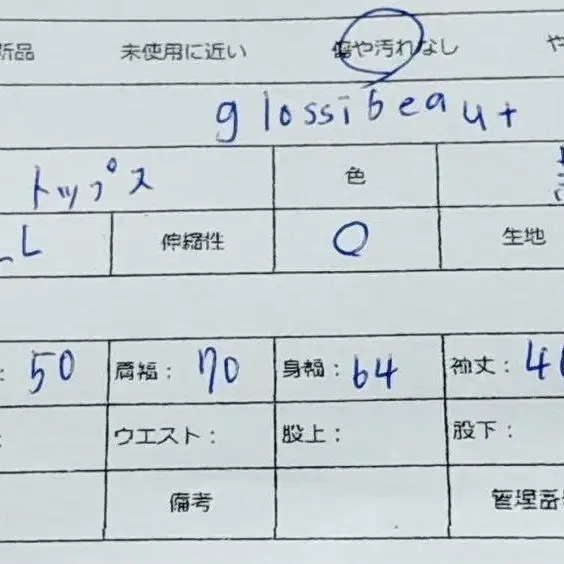 新品 未使用に近い 傷や汚れなし や
glossibeaut
トップス 色
LL 伸縮性 ○ 生地
: 50 肩幅: 70 身幅: 64 袖丈: 4
: ウエスト: 股上: 股下:
備考 管理番